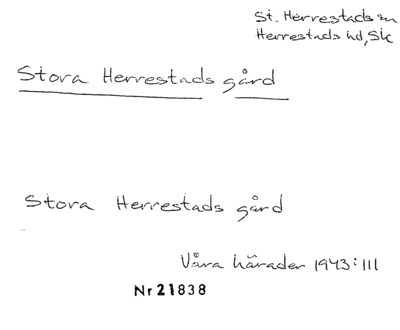 St. Herrestads sn
Herrestads hd, Sk
Stora Herrestads gård
Stora Herrestads gård
Våra härader 1943:III
Nr 21838